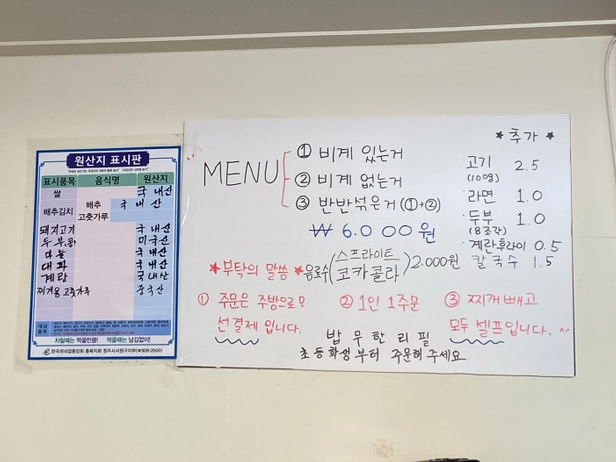 원산지 표시판
표시품목 음식명 원산지
쌀 국내산
배추김치 배추 국내산
고춧가루
돼지고기 국내산
두부,콩 미국산
마늘 국내산
대파 국내산
계란 국내산
찌개용 고춧가루 중국산
차릴때는 먹을만큼! 먹을때는 남김없이!
MENU
① 비계 있는거
② 비계 없는거
③ 반반섞은거 (①+②)
₩ 6.000원
★추가★
고기 2.5
(100g)
·라면 1.0
·두부 1.0
(8조각)
·계란후라이 0.5
·칼국수 1.5
★부탁의 말씀★
음료수 (스프라이트 코카콜라) 2.000원
① 주문은 주방으로?
선결제 입니다.
② 1인 1주문
③ 찌개빼고
모두 셀프입니다. ^^
밥 무한리필
초등학생부터 주문해주세요